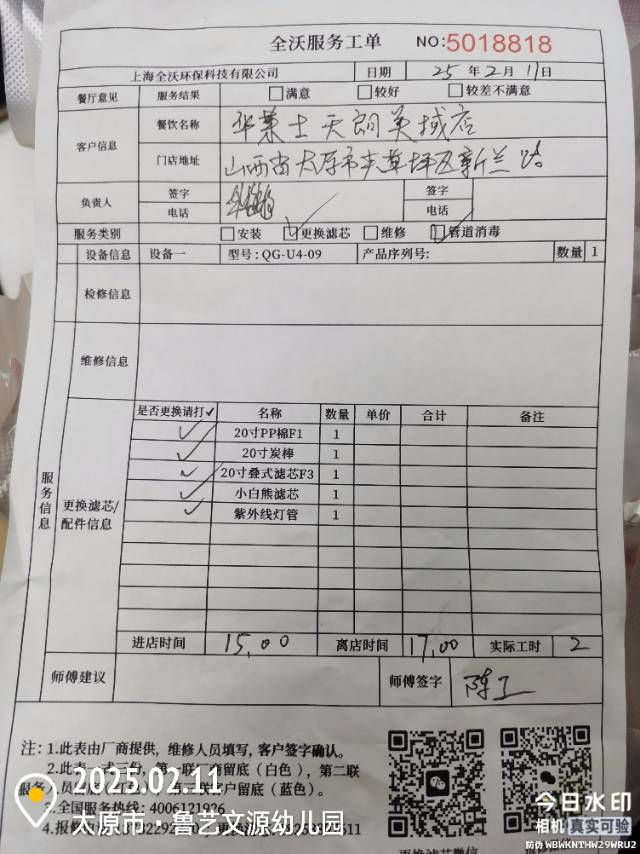 全沃服务工单 NO:5018818
上海全沃环保科技有限公司 日期 25 年 2 月 11 日
餐厅意见 服务结果 满意 较好 较差不满意
客户信息 餐饮名称 华莱士天朗美域店
门店地址 山西省太原市 草坪区新兰路
负责人 签字 签字
电话 电话
服务类别 安装 更换滤芯 维修 管道消毒
设备信息 设备一 型号:QG-U4-09 产品序列号: 数量 1
检修信息
维修信息
服务信息
更换滤芯/配件信息
是否更换请打✓ 名称 数量 单价 合计 备注
✓ 20寸PP棉F1 1
✓ 20寸炭棒 1
✓ 20寸叠式滤芯F3 1
✓ 小白熊滤芯 1
✓ 紫外线灯管 1
进店时间 15,00 离店时间 17,00 实际工时 2
师傅建议 师傅签字 陈工
注：1.此表由厂商提供，维修人员填写，客户签字确认。
2.此表一式三份，第一联厂商留底（白色），第二联
服务人员留底 客户留底（蓝色）。
3.全国服务热线：4006121926
4.报修
2025.02.11
太原市·鲁艺文源幼儿园
今日水印
相机 真实可验
防伪 WBWKNTHW29WRU2